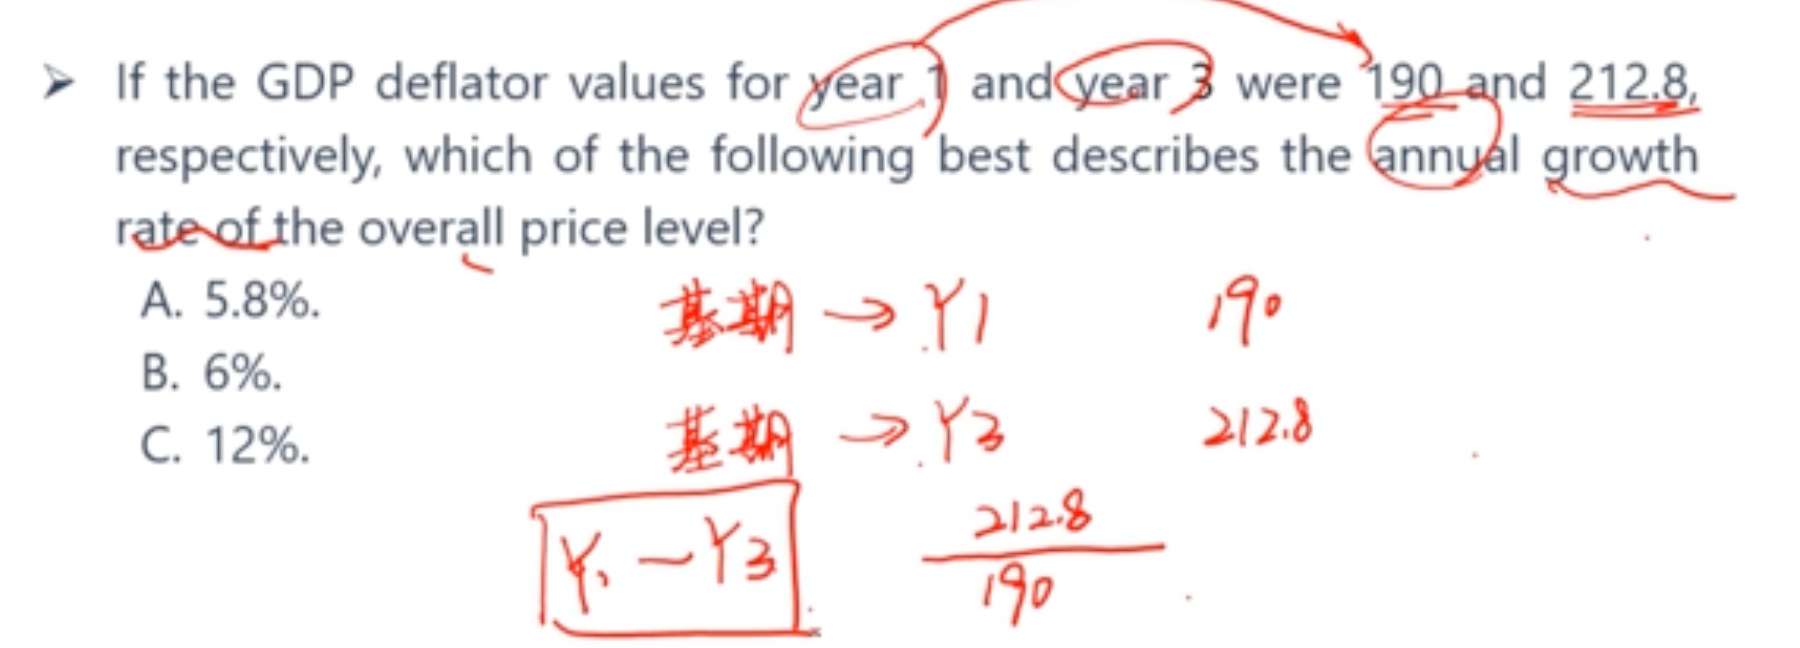 ➢ If the GDP deflator values for year 1 and year 3 were 190 and 212.8,
respectively, which of the following best describes the annual growth
rate of the overall price level?
A. 5.8%.
B. 6%.
C. 12%.
基期 → Y1 190
基期 → Y3 212.8
Y1 — Y3
212.8
190